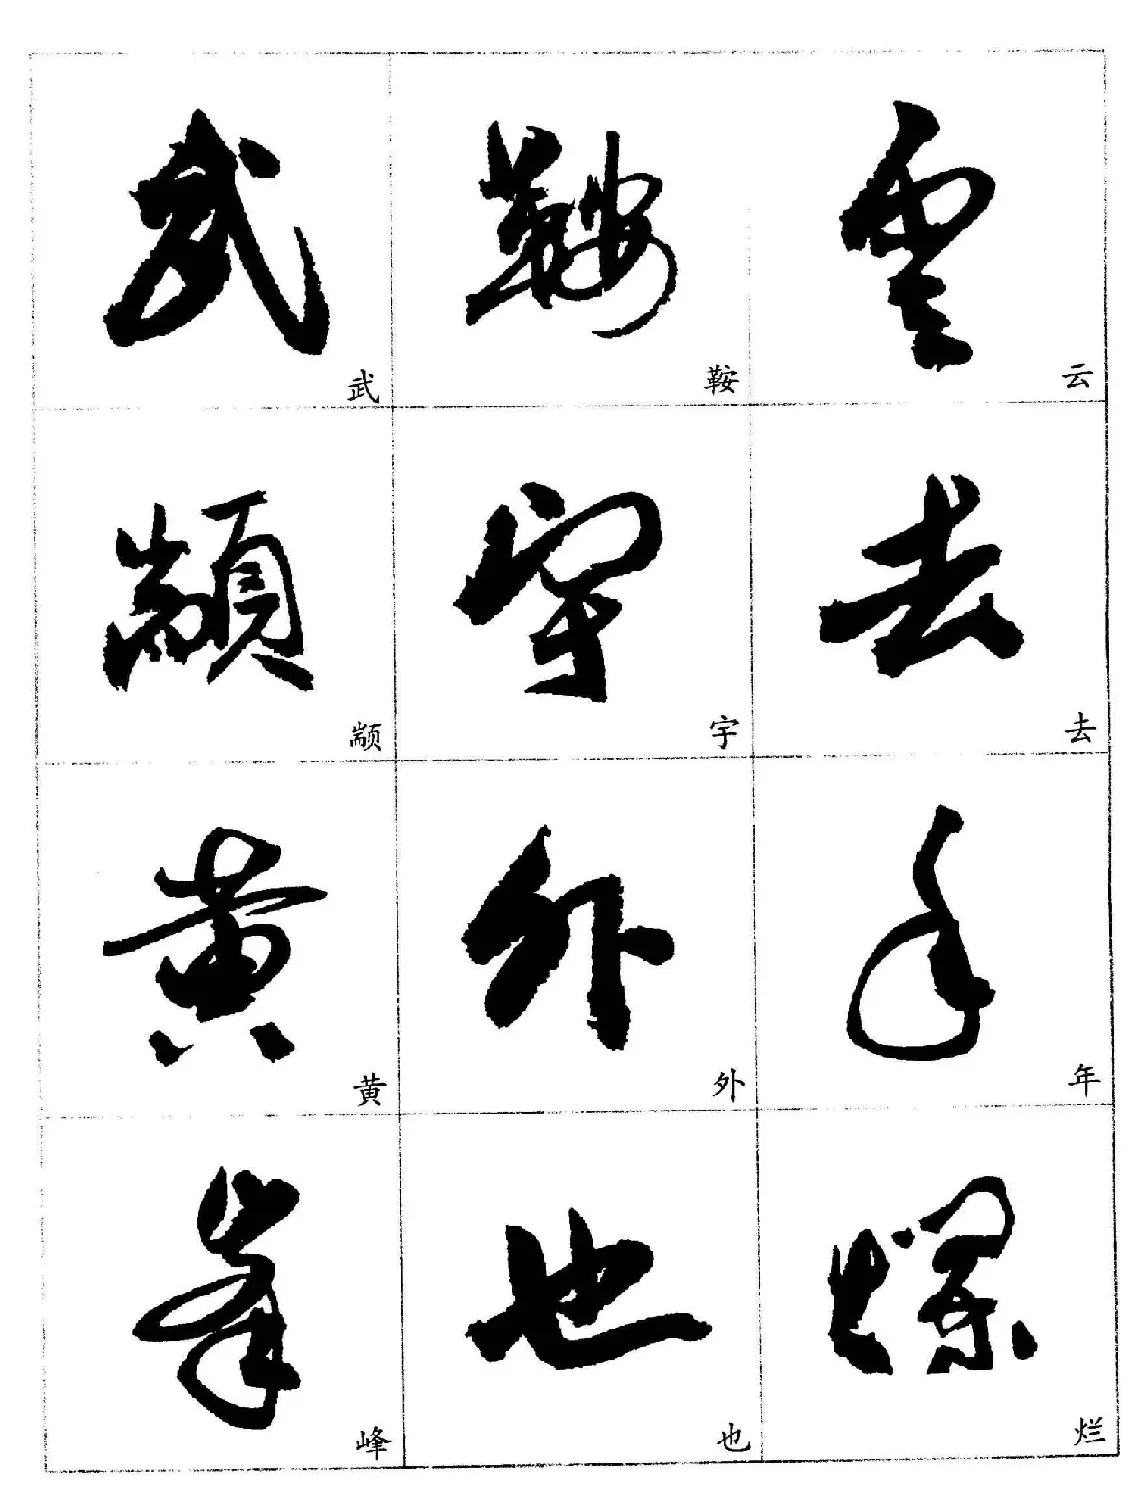 武 鞍 云
颛 宇 去
黄 外 年
峰 也 烂